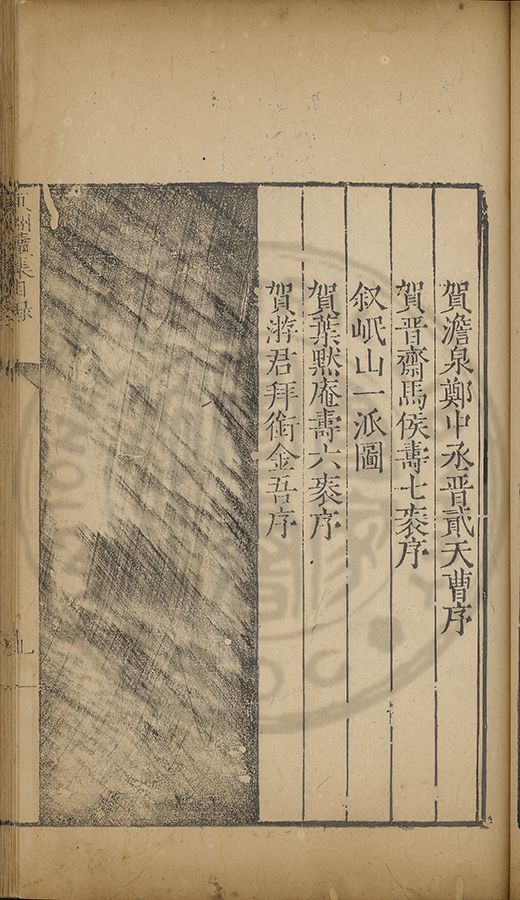 賀澹泉鄭中丞晋貳天曹序
賀晋齋馬侯壽七袠序
叙岷山一派圖
賀葉黙庵壽六袠序
賀游君拜銜金吾序
續集目録
九